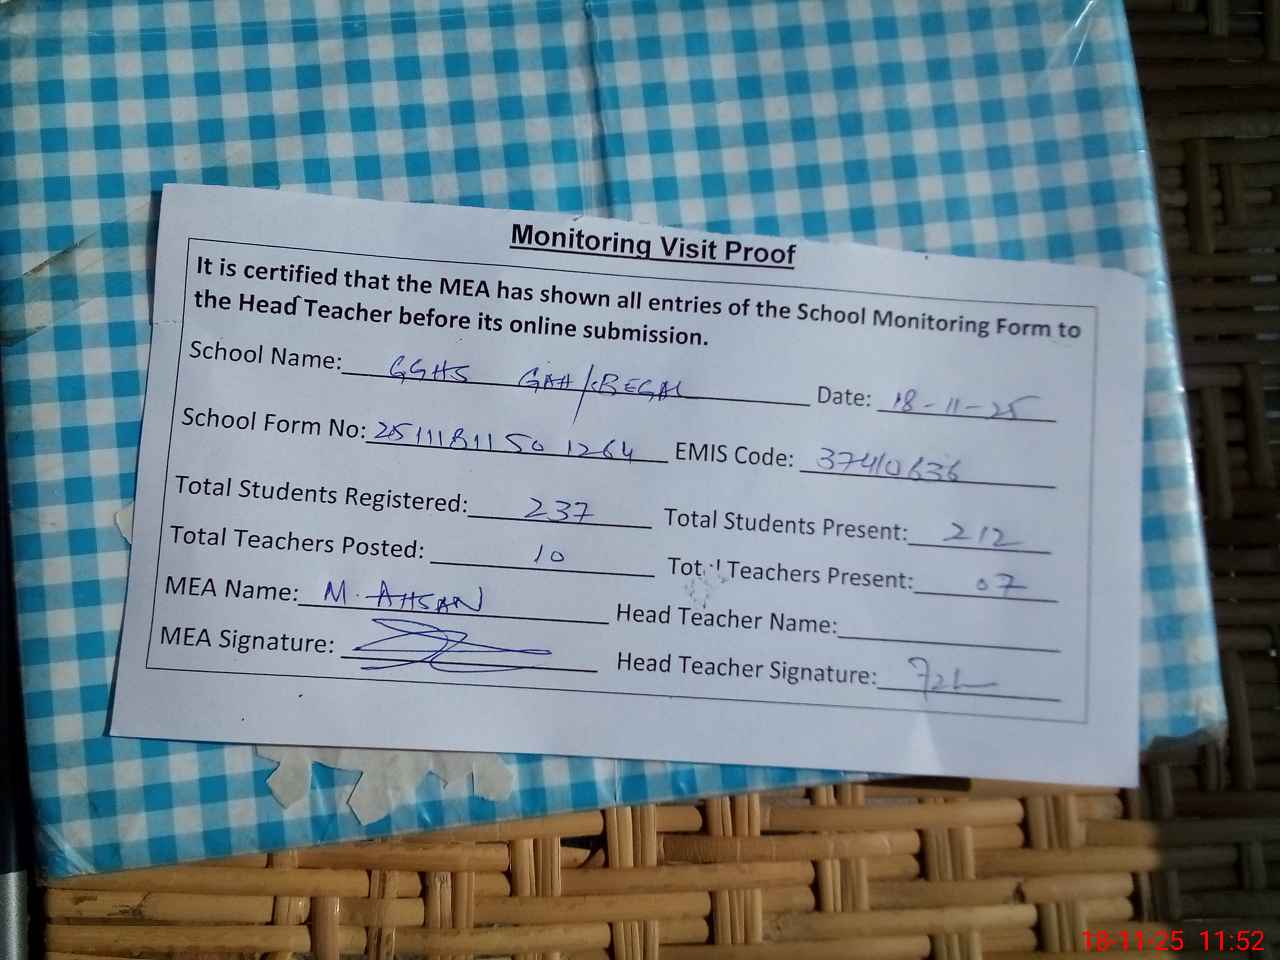 Monitoring Visit Proof
It is certified that the MEA has shown all entries of the School Monitoring Form to
the Head Teacher before its online submission.
School Name: GGHS GAH/BEGAL Date: 18-11-25
School Form No: 25111811501264 EMIS Code: 37410636
Total Students Registered: 237 Total Students Present: 212
Total Teachers Posted: 10 Total Teachers Present: 07
MEA Name: M. AHSAN Head Teacher Name:
MEA Signature: Head Teacher Signature:
18-11-25 11:52